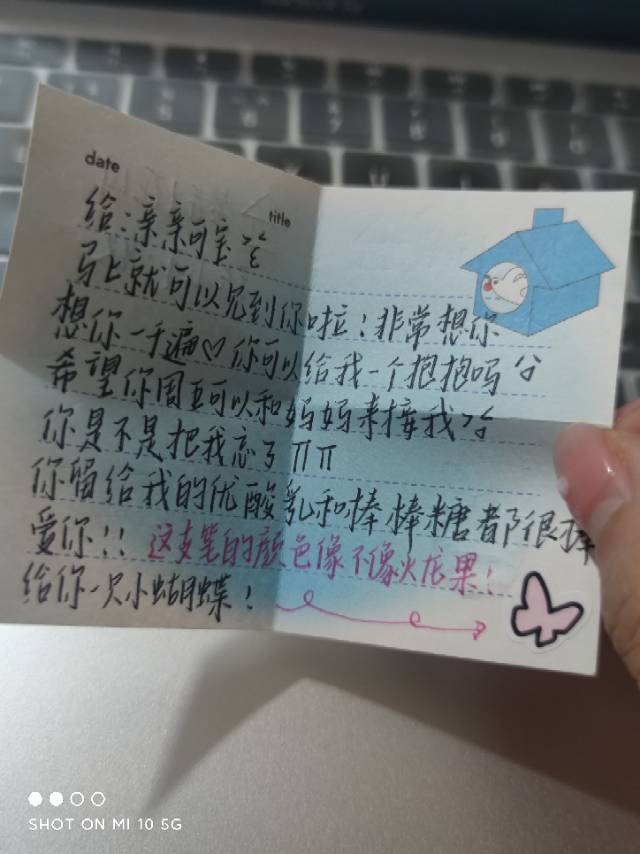 date
title
给:亲亲可宝
马上就可以见到你啦!非常想你
想你一千遍♡你可以给我一个抱抱吗
希望你周五可以和妈妈来接我
你是不是把我忘了ΠΠ
你留给我的优酸乳和棒棒糖都很棒
爱你!!这支笔的颜色像不像火龙果!
给你一只小蝴蝶!
SHOT ON MI 10 5G